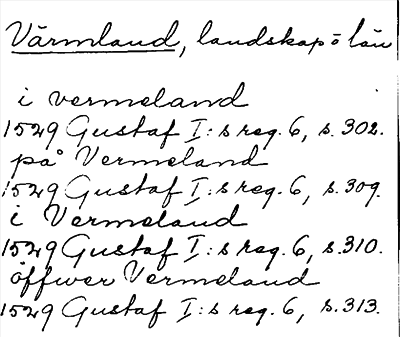 Värmland, landskap o län
i vermeland
1529 Gustaf I:s reg. 6, s. 302.
på Vermeland
1529 Gustaf I:s reg. 6, s. 309.
i Vermeland
1529 Gustaf I:s reg. 6, s. 310.
öffwer Vermeland
1529 Gustaf I:s reg. 6, s. 313.